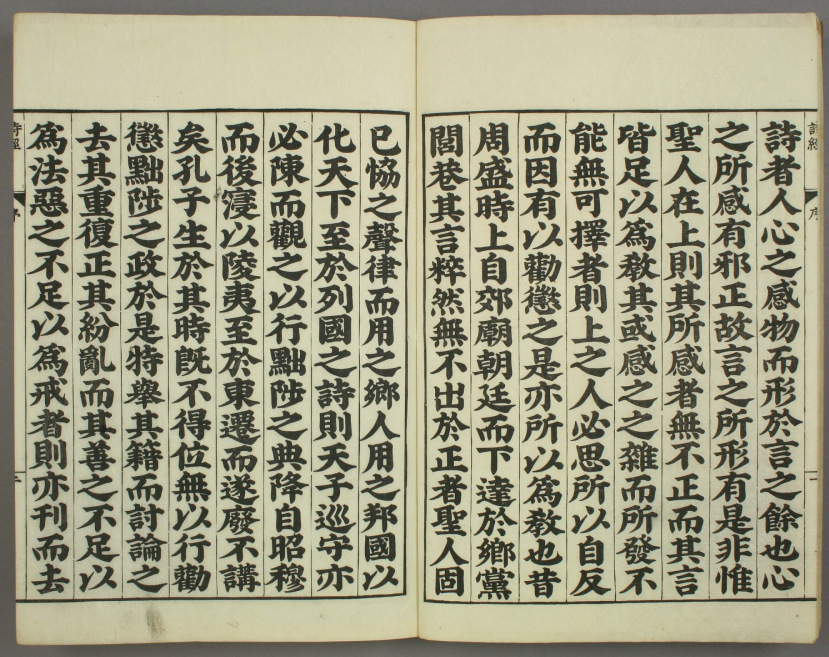 詩經
序
一
詩者人心之感物而形於言之餘也心
之所感有邪正故言之所形有是非惟
聖人在上則其所感者無不正而其言
皆足以爲敎其或感之之雜而所發不
能無可擇者則上之人必思所以自反
而因有以勸懲之是亦所以爲敎也昔
周盛時上自郊廟朝廷而下達於鄉黨
閭巷其言粹然無不出於正者聖人固
已恊之聲律而用之鄉人用之邦國以
化天下至於列國之詩則天子巡守亦
必陳而觀之以行黜陟之典降自昭穆
而後寖以陵夷至於東遷而遂廢不講
矣孔子生於其時旣不得位無以行勸
懲黜陟之政於是特擧其籍而討論之
去其重復正其紛亂而其善之不足以
爲法惡之不足以爲戒者則亦刊而去
詩經
序